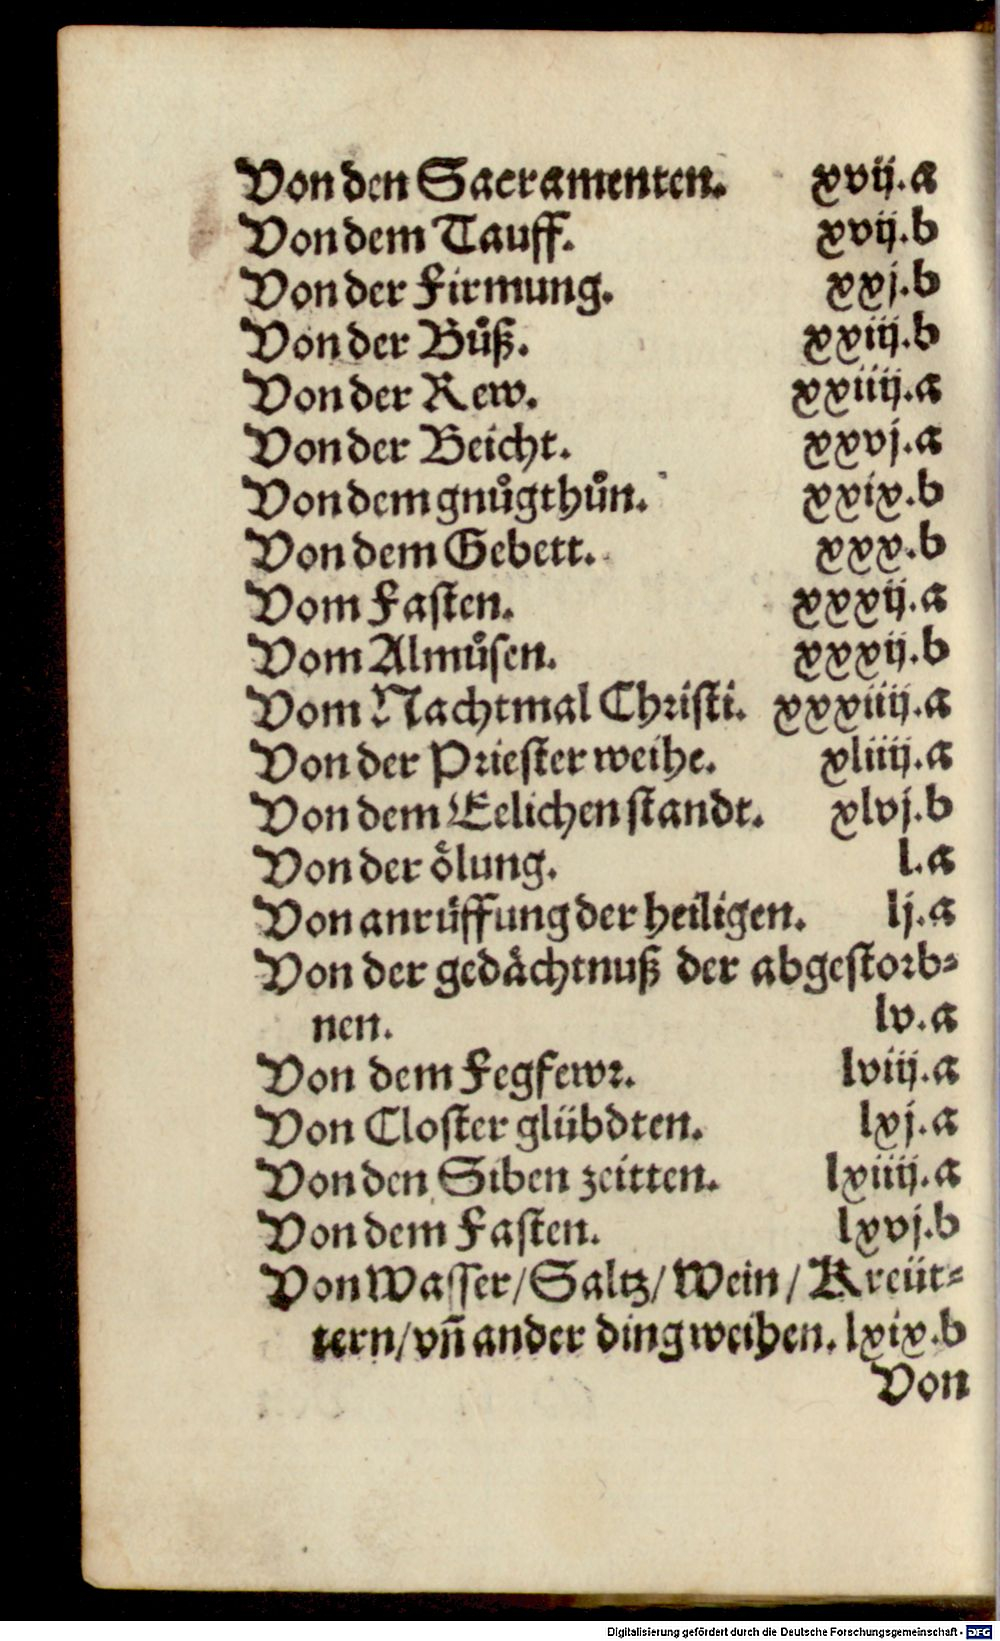 Von den Sacramenten. xvij.a
Von dem Tauff. xvij.b
Von der Firmung. xxj.b
Von der Bůß. xxiij.b
Von der Rew. xxiiij.a
Von der Beicht. xxvj.a
Von dem gnůgthůn. xxix.b
Von dem Gebett. xxx.b
Vom Fasten. xxxij.a
Vom Almůsen. xxxij.b
Vom Nachtmal Christi. xxxiiij.a
Von der Priester weihe. xliiij.a
Von dem Eelichen standt. xlvj.b
Von der oͤlung. l.a
Von anrüffung der heiligen. lj.a
Von der gedaͤchtnuß der abgestorb⸗
nen. lv.a
Von dem Fegfewr. lviij.a
Von Closter glübdten. lxj.a
Von den Siben zeitten. lxiiij.a
Von dem Fasten. lxvj.b
Von Wasser/Saltz/Wein/Kreüt⸗
tern/vñ ander ding weihen. lxix.b
Von
Digitalisierung gefördert durch die Deutsche Forschungsgemeinschaft - DFG